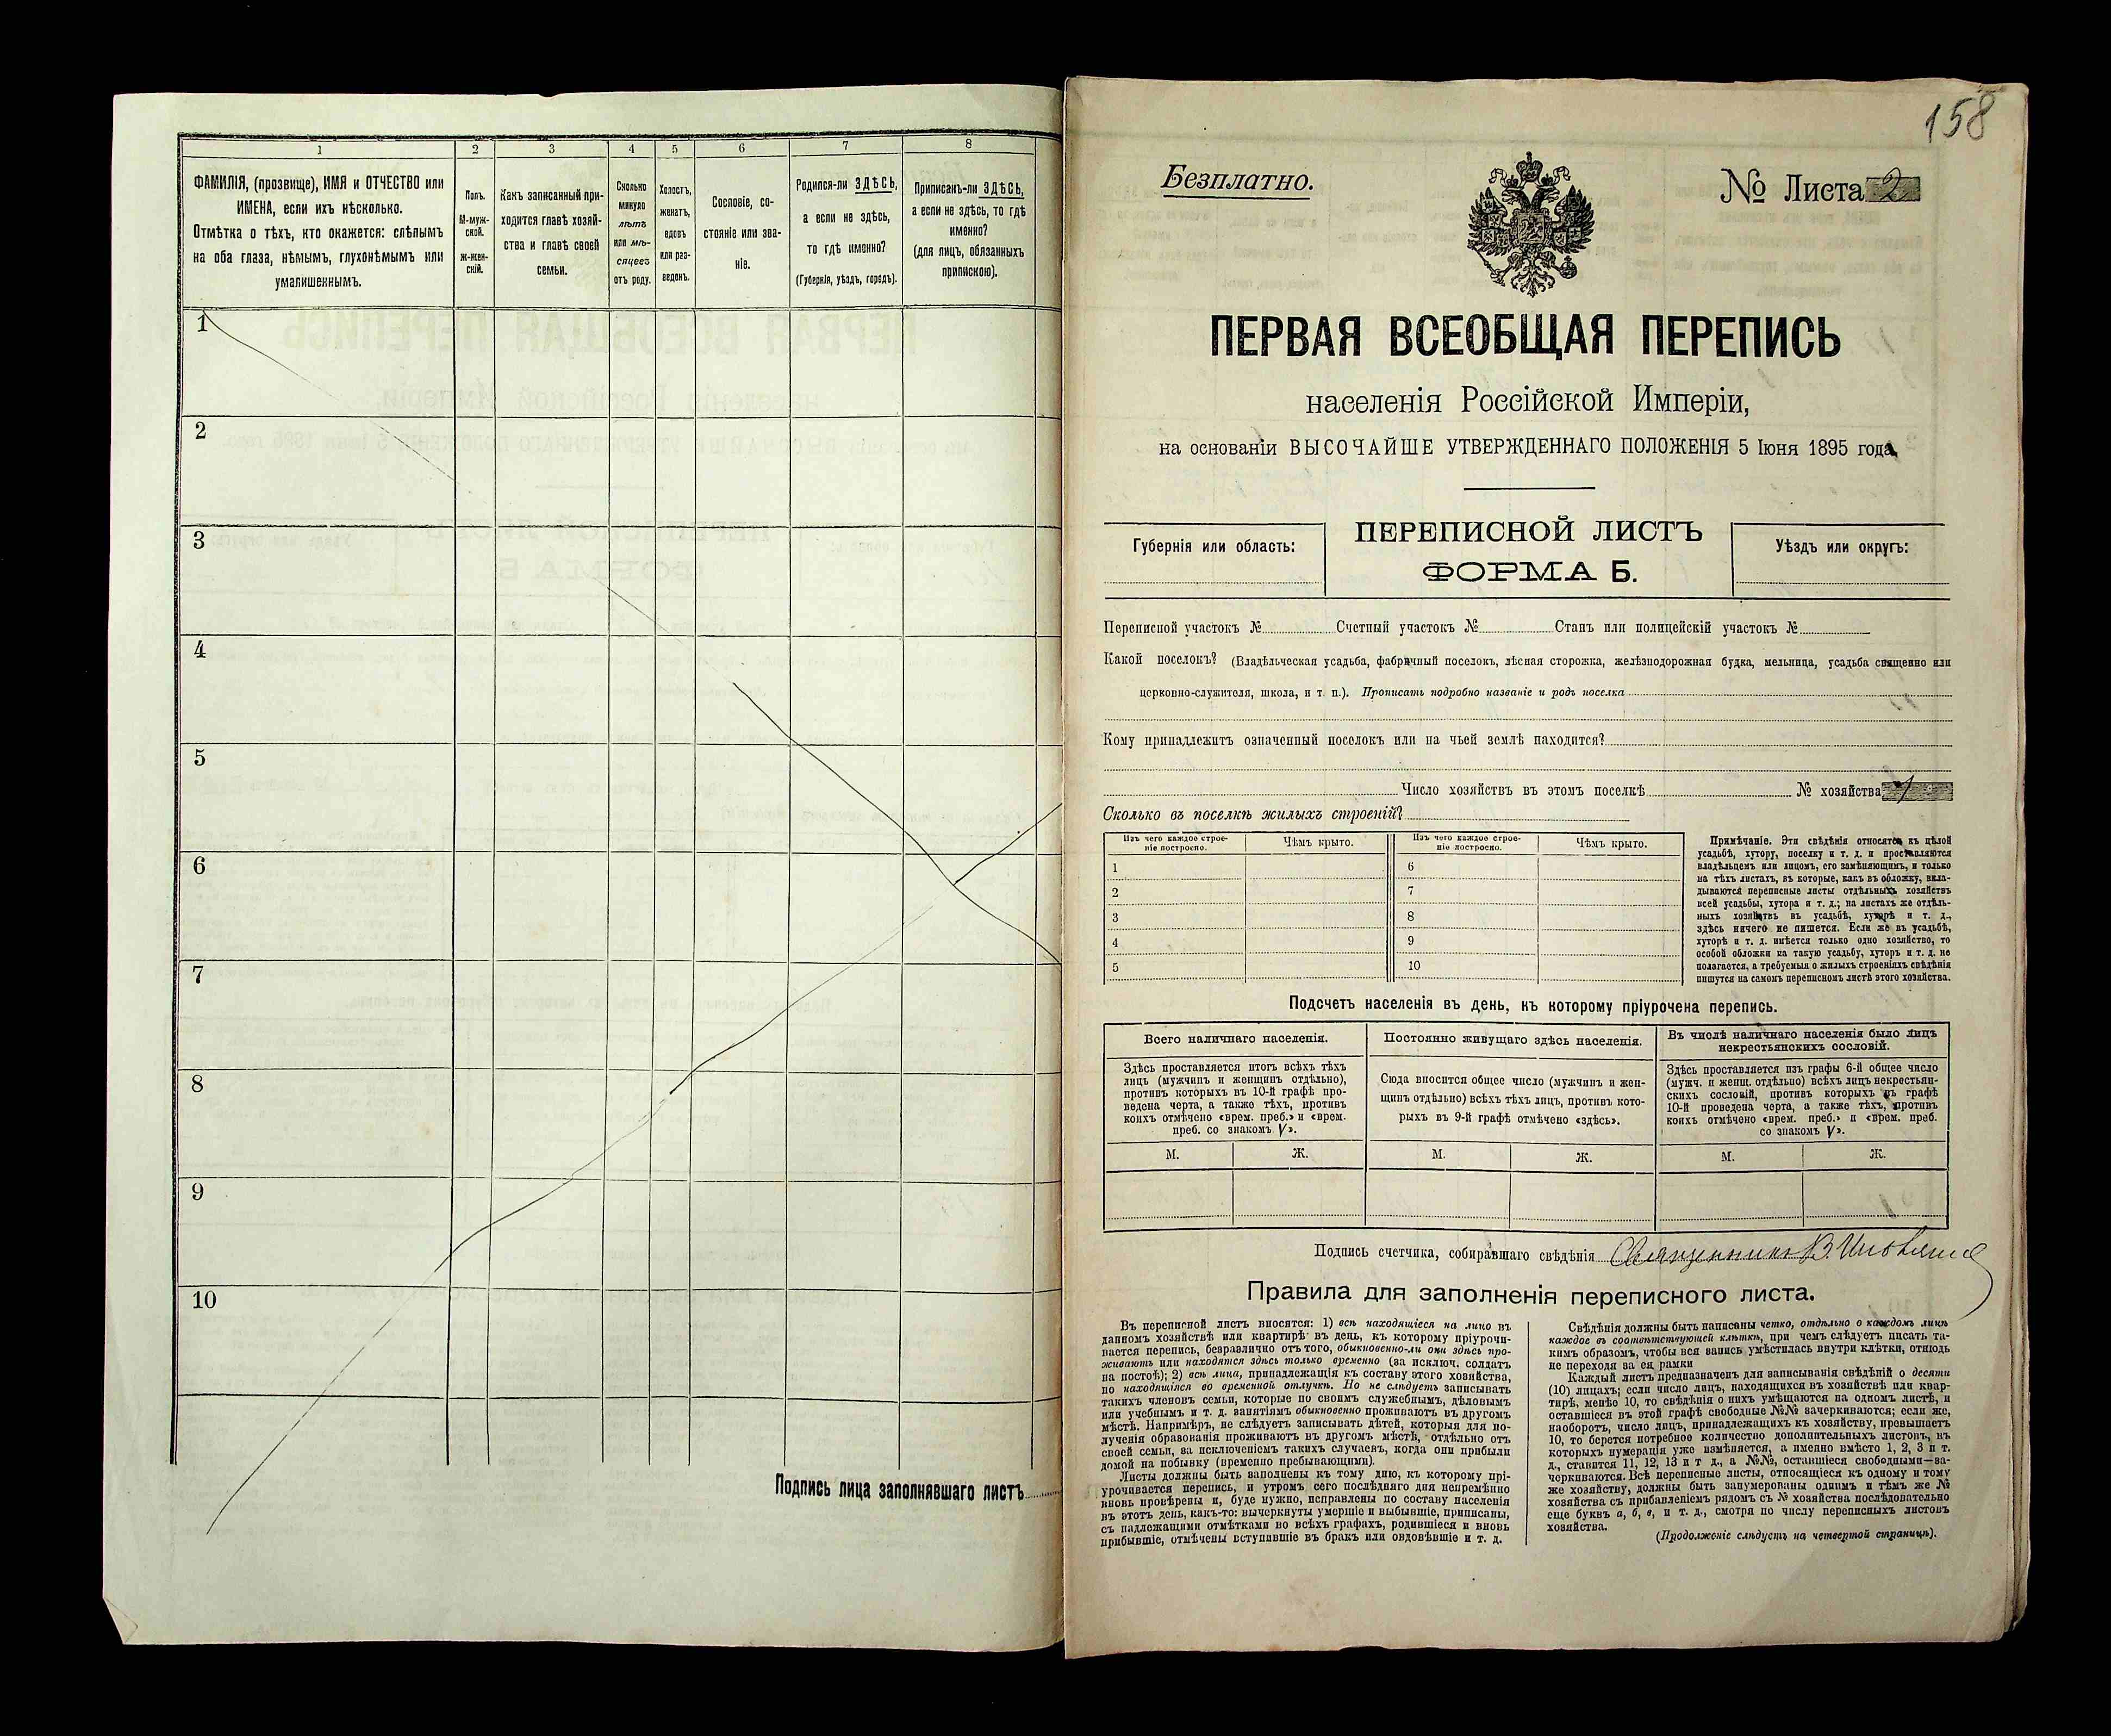 1
2
3
4
5
6
7
8
ФАМИЛІЯ, (прозвище), ИМЯ и ОТЧЕСТВО или
ИМЕНА, если ихъ нѣсколько.
Отмѣтка о тѣхъ, кто окажется: слѣпымъ
на оба глаза, нѣмымъ, глухонѣмымъ или
умалишеннымъ.
Полъ.
М-муж-
ской.
ж-жен-
скій.
Какъ записанный при-
ходится главѣ хозяй-
ства и главѣ своей
семьи.
Сколько
минуло
лѣтъ
или мѣ-
сяцевъ
отъ роду.
Холостъ,
женатъ,
вдовъ
или раз-
веденъ.
Сословіе, со-
стояніе или зва-
ніе.
Родился-ли ЗДѢСЬ,
а если не здѣсь,
то гдѣ именно?
(Губернія, уѣздъ, городъ).
Приписанъ-ли ЗДѢСЬ,
а если не здѣсь, то гдѣ
именно?
(для лицъ, обязанныхъ
припискою).
1
2
3
4
5
6
7
8
9
10
Подпись лица заполнявшаго листъ
158
Безплатно.
№ Листа 2
ПЕРВАЯ ВСЕОБЩАЯ ПЕРЕПИСЬ
населенія Россійской Имперіи,
на основаніи ВЫСОЧАЙШЕ УТВЕРЖДЕННАГО ПОЛОЖЕНІЯ 5 Іюня 1895 года.
Губернія или область:
ПЕРЕПИСНОЙ ЛИСТЪ
ФОРМА Б.
Уѣздъ или округъ:
Переписной участокъ № Счетный участокъ № Станъ или полицейскій участокъ №
Какой поселокъ? (Владѣльческая усадьба, фабричный поселокъ, лѣсная сторожка, желѣзнодорожная будка, мельница, усадьба священно или
церковно-служителя, школа, и т. п.). Прописать подробно названіе и родъ поселка
Кому принадлежитъ означенный поселокъ или на чьей землѣ находится?
Число хозяйствъ въ этомъ поселкѣ № хозяйства 1
Сколько въ поселкѣ жилыхъ строеній?
Изъ чего каждое строе-
ніе построено.
Чѣмъ крыто.
Изъ чего каждое строе-
ніе построено.
Чѣмъ крыто.
1
2
3
4
5
6
7
8
9
10
Примѣчаніе. Эти свѣдѣнія относятся къ цѣлой
усадьбѣ, хутору, поселку и т. д. и проставляются
владѣльцемъ или лицомъ, его замѣняющимъ, и только
на тѣхъ листахъ, въ которые, какъ въ обложку, вкла-
дываются переписные листы отдѣльныхъ хозяйствъ
всей усадьбы, хутора и т. д.; на листахъ же отдѣль-
ныхъ хозяйствъ въ усадьбѣ, хуторѣ и т. д.,
здѣсь ничего не пишется. Если же въ усадьбѣ,
хуторѣ и т. д. имѣется только одно хозяйство, то
особой обложки на такую усадьбу, хуторъ и т. д. не
полагается, а требуемыя о жилыхъ строеніяхъ свѣдѣнія
пишутся на самомъ переписномъ листѣ этого хозяйства.
Подсчетъ населенія въ день, къ которому пріурочена перепись.
Всего наличнаго населенія.
Здѣсь проставляется итогъ всѣхъ тѣхъ
лицъ (мужчинъ и женщинъ отдѣльно),
противъ которыхъ въ 10-й графѣ про-
ведена черта, а также тѣхъ, противъ
коихъ отмѣчено «врем. преб.» и «врем.
преб. со знакомъ V».
Постоянно живущаго здѣсь населенія.
Сюда вносится общее число (мужчинъ и жен-
щинъ отдѣльно) всѣхъ тѣхъ лицъ, противъ кото-
рыхъ въ 9-й графѣ отмѣчено «здѣсь».
Въ числѣ наличнаго населенія было лицъ
некрестьянскихъ сословій.
Здѣсь проставляется изъ графы 6-й общее число
(мужч. и женщ. отдѣльно) всѣхъ лицъ некрестьян-
скихъ сословій, противъ которыхъ въ графѣ
10-й проведена черта, а также тѣхъ, противъ
коихъ отмѣчено «врем. преб.» и «врем. преб.
со знакомъ V».
М. Ж. М. Ж. М. Ж.
Подпись счетчика, собиравшаго свѣдѣнія Священникъ В.
Правила для заполненія переписного листа.
Въ переписной листъ вносятся: 1) всѣ находящіеся на лицо въ
данномъ хозяйствѣ или квартирѣ въ день, къ которому пріурочи-
вается перепись, безразлично отъ того, обыкновенно-ли они здѣсь про-
живаютъ или находятся здѣсь только временно (за исключ. солдатъ
на постоѣ); 2) всѣ лица, принадлежащія къ составу этого хозяйства,
но находящіяся во временной отлучкѣ. Но не слѣдуетъ записывать
такихъ членовъ семьи, которые по своимъ служебнымъ, дѣловымъ
или учебнымъ и т. д. занятіямъ обыкновенно проживаютъ въ другомъ
мѣстѣ. Напримѣръ, не слѣдуетъ записывать дѣтей, которыя для по-
лученія образованія проживаютъ въ другомъ мѣстѣ, отдѣльно отъ
своей семьи, за исключеніемъ такихъ случаевъ, когда они прибыли
домой на побывку (временно пребывающими).
Листы должны быть заполнены къ тому дню, къ которому прі-
урочивается перепись, и утромъ сего послѣдняго дня непремѣнно
вновь провѣрены и, буде нужно, исправлены по составу населенія
въ этотъ день, какъ-то: вычеркнуты умершіе и выбывшіе, приписаны,
съ надлежащими отмѣтками во всѣхъ графахъ, родившіеся и вновь
прибывшіе, отмѣчены вступившіе въ бракъ или овдовѣвшіе и т. д.
Свѣдѣнія должны быть написаны четко, отдѣльно о каждомъ лицѣ
каждое въ соотвѣтствующей клѣткѣ, при чемъ слѣдуетъ писать та-
кимъ образомъ, чтобы вся запись умѣстилась внутри клѣтки, отнюдь
не переходя за ея рамки
Каждый листъ предназначенъ для записыванія свѣдѣній о десяти
(10) лицахъ; если число лицъ, находящихся въ хозяйствѣ или квар-
тирѣ, менѣе 10, то свѣдѣнія о нихъ умѣщаются на одномъ листѣ, и
оставшіеся въ этой графѣ свободные №№ зачеркиваются; если же,
наоборотъ, число лицъ, принадлежащихъ къ хозяйству, превышаетъ
10, то берется потребное количество дополнительныхъ листовъ, въ
которыхъ нумерація уже измѣняется, а именно вмѣсто 1, 2, 3 и т.
д., ставится 11, 12, 13 и т д., а №№, оставшіеся свободными—за-
черкиваются. Всѣ переписные листы, относящіеся къ одному и тому
же хозяйству, должны быть занумерованы однимъ и тѣмъ же №
хозяйства съ прибавленіемъ рядомъ съ № хозяйства послѣдовательно
еще буквъ а, б, в, и т. д., смотря по числу переписныхъ листовъ
хозяйства.
(Продолженіе слѣдуетъ на четвертой страницѣ).